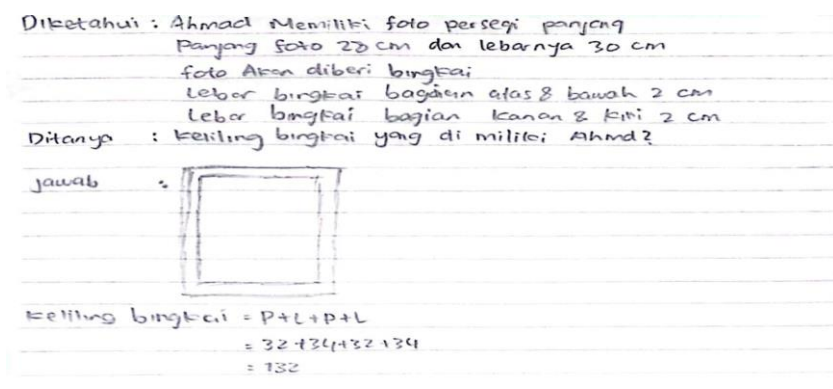 Diketahui : Ahmad Memiliki foto persegi panjang
Panjang foto 28 cm dan lebarnya 30 cm
foto Akan diberi bingkai
Lebar bingkai bagian atas & bawah 2 cm
Lebar bingkai bagian kanan & kiri 2 cm
Ditanya : keliling bingkai yang di miliki Ahmd?
jawab :
Keliling bingkai = P+L+P+L
= 32+34+32+34
= 132